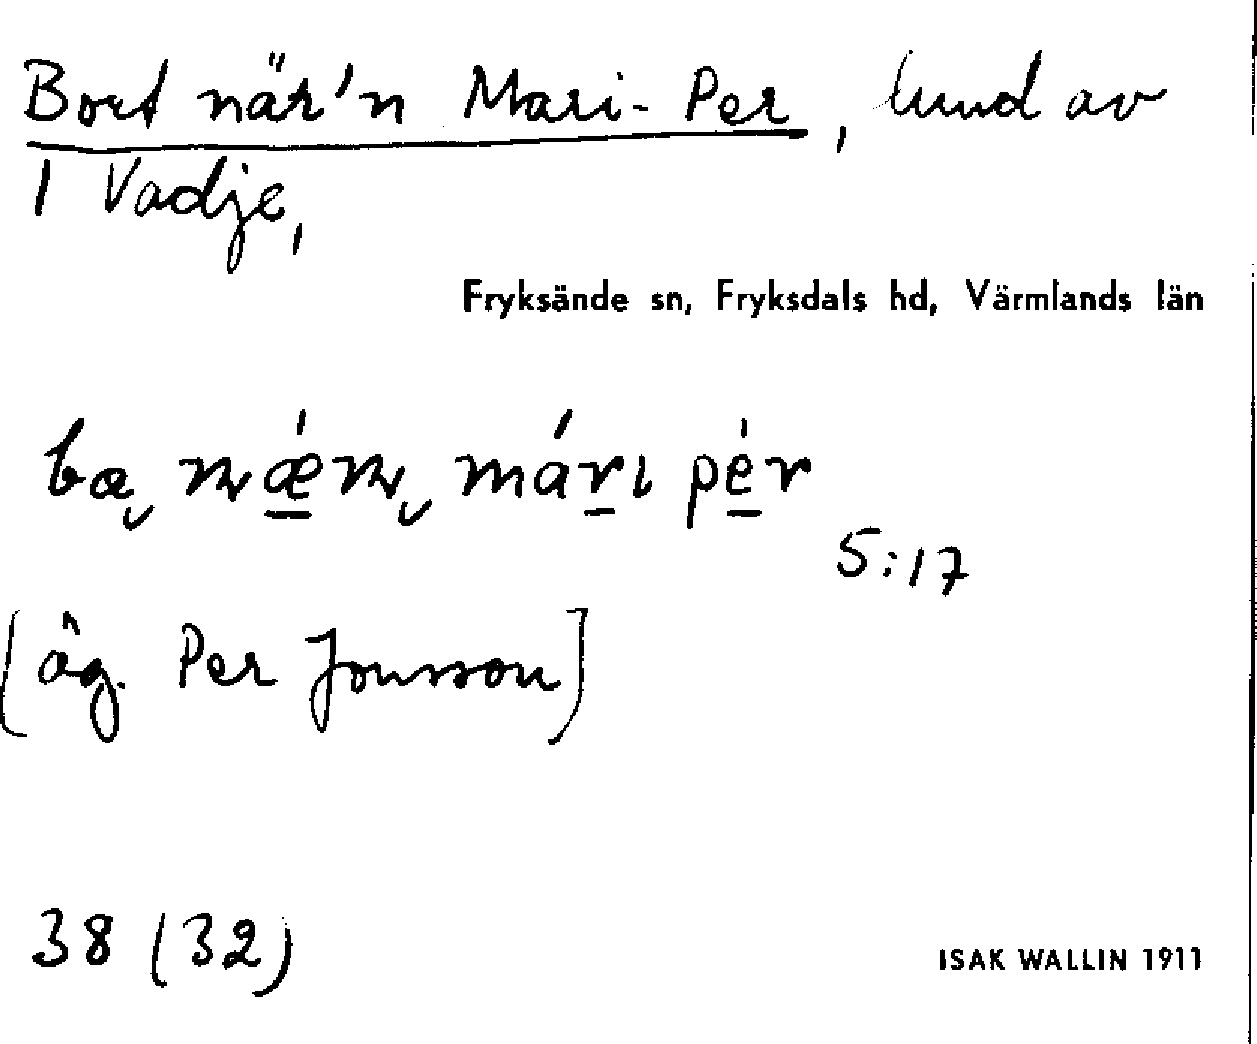 Bort när'n Mari-Per, lund av
1 Vadje,
Fryksände sn, Fryksdals hd, Värmlands län
ba nǽ̲n már̲ı pé̲r
5:17
[äg. Per Jonsson]
38 (32)
ISAK WALLIN 1911